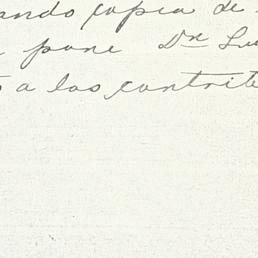 ando copia de
pone Dn Lu
a los contrib